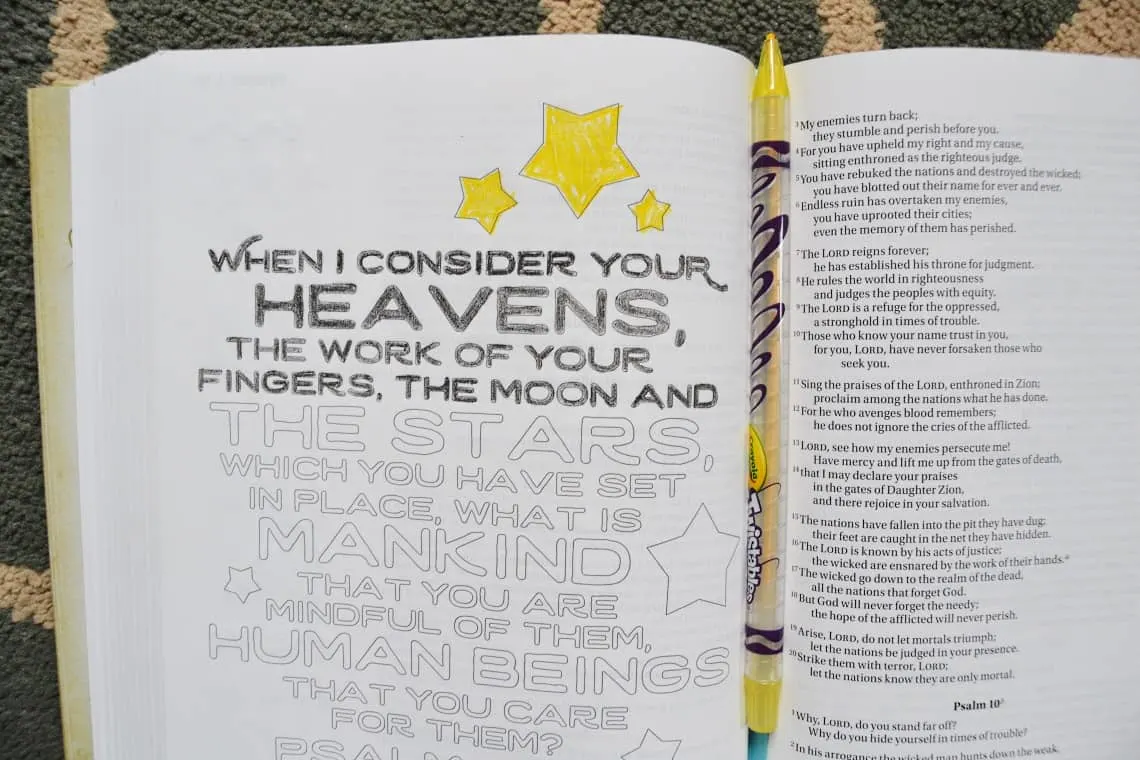 WHEN I CONSIDER YOUR
HEAVENS,
THE WORK OF YOUR
FINGERS, THE MOON AND
THE STARS,
WHICH YOU HAVE SET
IN PLACE, WHAT IS
MANKIND
THAT YOU ARE
MINDFUL OF THEM,
HUMAN BEINGS
THAT YOU CARE
FOR THEM?
PSALM
crayola
Twistables
3 My enemies turn back;
they stumble and perish before you.
4 For you have upheld my right and my cause,
sitting enthroned as the righteous judge.
5 You have rebuked the nations and destroyed the wicked;
you have blotted out their name for ever and ever.
6 Endless ruin has overtaken my enemies,
you have uprooted their cities;
even the memory of them has perished.
7 The LORD reigns forever;
he has established his throne for judgment.
8 He rules the world in righteousness
and judges the peoples with equity.
9 The LORD is a refuge for the oppressed,
a stronghold in times of trouble.
10 Those who know your name trust in you,
for you, LORD, have never forsaken those who
seek you.
11 Sing the praises of the LORD, enthroned in Zion;
proclaim among the nations what he has done.
12 For he who avenges blood remembers;
he does not ignore the cries of the afflicted.
13 LORD, see how my enemies persecute me!
Have mercy and lift me up from the gates of death,
14 that I may declare your praises
in the gates of Daughter Zion,
and there rejoice in your salvation.
15 The nations have fallen into the pit they have dug;
their feet are caught in the net they have hidden.
16 The LORD is known by his acts of justice;
the wicked are ensnared by the work of their hands.
17 The wicked go down to the realm of the dead,
all the nations that forget God.
18 But God will never forget the needy;
the hope of the afflicted will never perish.
19 Arise, LORD, do not let mortals triumph;
let the nations be judged in your presence.
20 Strike them with terror, LORD;
let the nations know they are only mortal.
Psalm 10
1 Why, LORD, do you stand far off?
Why do you hide yourself in times of trouble?
2 In his arrogance the wicked man hunts down the weak,